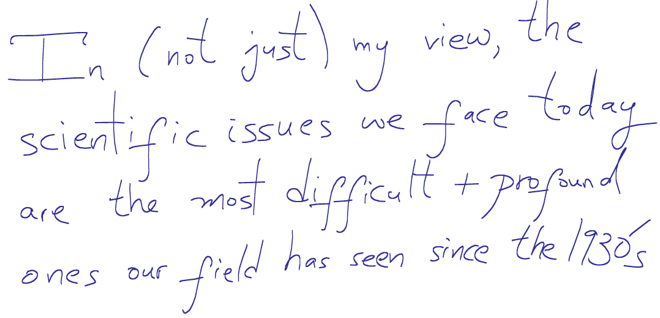 In (not just) my view, the
scientific issues we face today
are the most difficult + profound
ones our field has seen since the 1930's